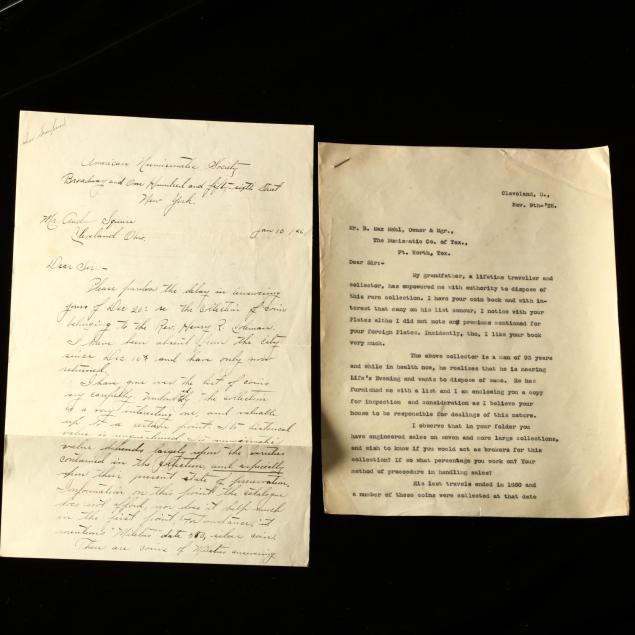 American Numismatic Society
Broadway and One Hundred and fifty-sixth Street
New York.
Mr. Andrew Squire
Cleveland Ohio.
Jan 10 / 26
Dear Sir:-
Please pardon the delay in answering
yours of Dec 20th re the Collection of Coins
belonging to the Rev. Henry R. Coleman.
I have been absent from the city
since Dec 10th and have only now
returned.
I have gone over the list of coins
very carefully. Undoubtedly the collection
is a very interesting one, and valuable
up to a certain point. Its historical
value is unquestioned. Its numismatic
value depends largely upon the varieties
contained in the collection, and especially
upon their present state of preservation.
Information on this point the catalogue
does not afford, nor does it help much
in the first point. For instance, it
mentions "Miletus" date 500, silver coin.
There are coins of Miletus answering
Cleveland, O.,
Nov. 9th-'25.
Mr. B. Max Mehl, Owner & Mgr.,
The Numismatic Co. of Tex.,
Ft. Worth, Tex.
Dear Sir:-
My grandfather, a lifetime traveller and
collector, has empowered me with authority to dispose of
this rare collection. I have your coin book and with in-
terest that many on his list concur, I notice with your
Plates altho I did not note any premiums mentioned for
your foreign Plates. Incidently, tho, I like your book
very much.
The above collector is a man of 93 years
and while in health now, he realizes that he is nearing
Life's Evening and wants to dispose of same. He has
furnished me with a list and I am enclosing you a copy
for inspection and consideration as I believe your
house to be responsible for dealings of this nature.
I observe that in your folder you
have engineered sales on seven and more large collections,
and wish to know if you would act as brokers for this
collection? If so what percentage you work on? Your
method of proceedure in handling sales?
His last travels ended in 1880 and
a number of these coins were collected at that date